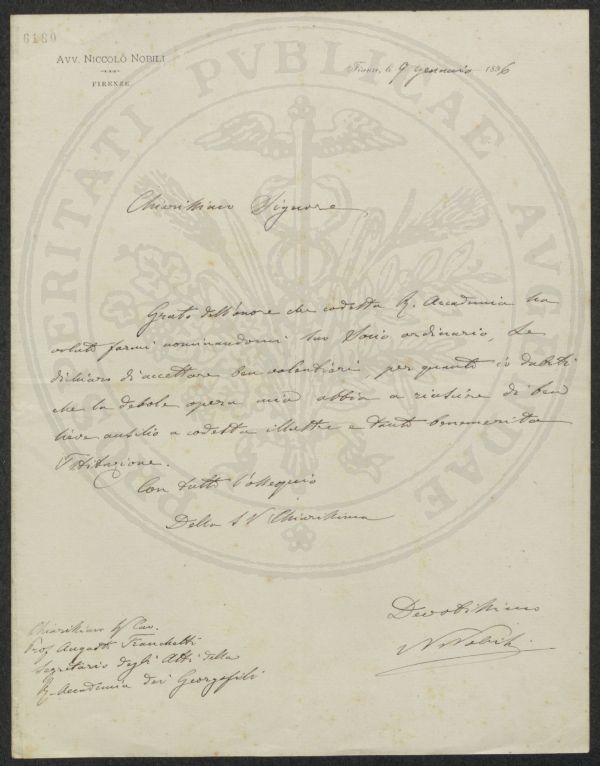 6180
AVV. NICCOLÒ NOBILI
FIRENZE
Firenze, li 9 gennaio 1896
PROSPERITATI PVBLICAE AVGENDAE
Chiarissimo Signore
Grato dell'onore che codesta R. Accademia ha
voluto farmi nominandomi suo Socio ordinario, Le
dichiaro di accettare ben volentieri, per quanto io dubiti
che la debole opera mia abbia a riuscire di ben
lieve ausilio a codesta illustre e tanto benemerita
Istituzione.
Con tutto l'ossequio
Della S V Chiarissima
Devotissimo
N Nobili
Chiarissimo Cav.
Prof. Augusto Franchetti
Segretario degli Atti della
R. Accademia dei Georgofili